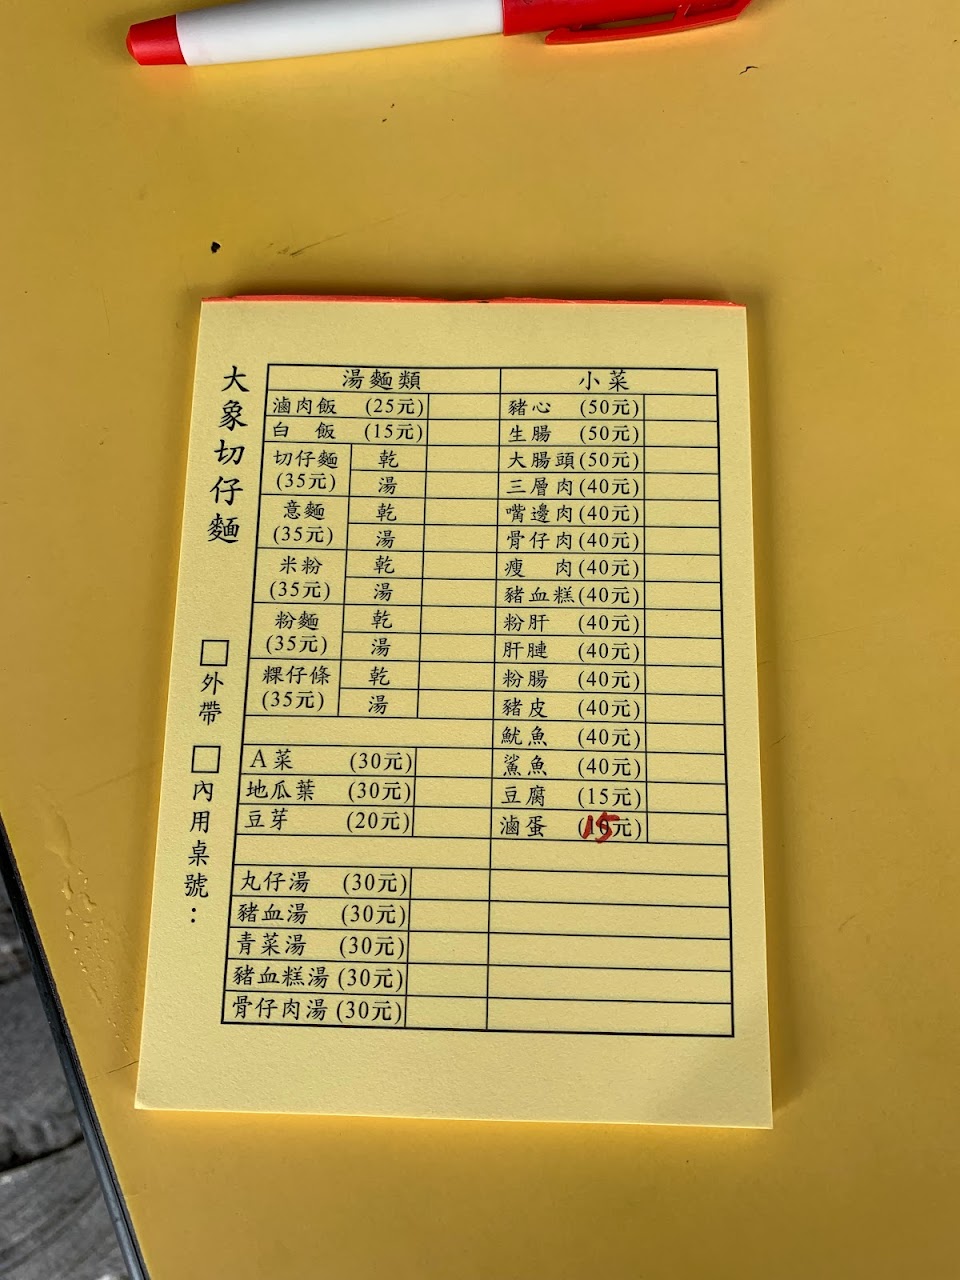 大象切仔麵
□外帶 □內用桌號：
湯麵類
滷肉飯 (25元)
白 飯 (15元)
切仔麵 (35元) 乾
湯
意麵 (35元) 乾
湯
米粉 (35元) 乾
湯
粉麵 (35元) 乾
湯
粿仔條 (35元) 乾
湯
A菜 (30元)
地瓜葉 (30元)
豆芽 (20元)
丸仔湯 (30元)
豬血湯 (30元)
青菜湯 (30元)
豬血糕湯 (30元)
骨仔肉湯 (30元)
小菜
豬心 (50元)
生腸 (50元)
大腸頭 (50元)
三層肉 (40元)
嘴邊肉 (40元)
骨仔肉 (40元)
瘦 肉 (40元)
豬血糕 (40元)
粉肝 (40元)
肝腱 (40元)
粉腸 (40元)
豬皮 (40元)
魷魚 (40元)
鯊魚 (40元)
豆腐 (15元)
滷蛋 (15元)